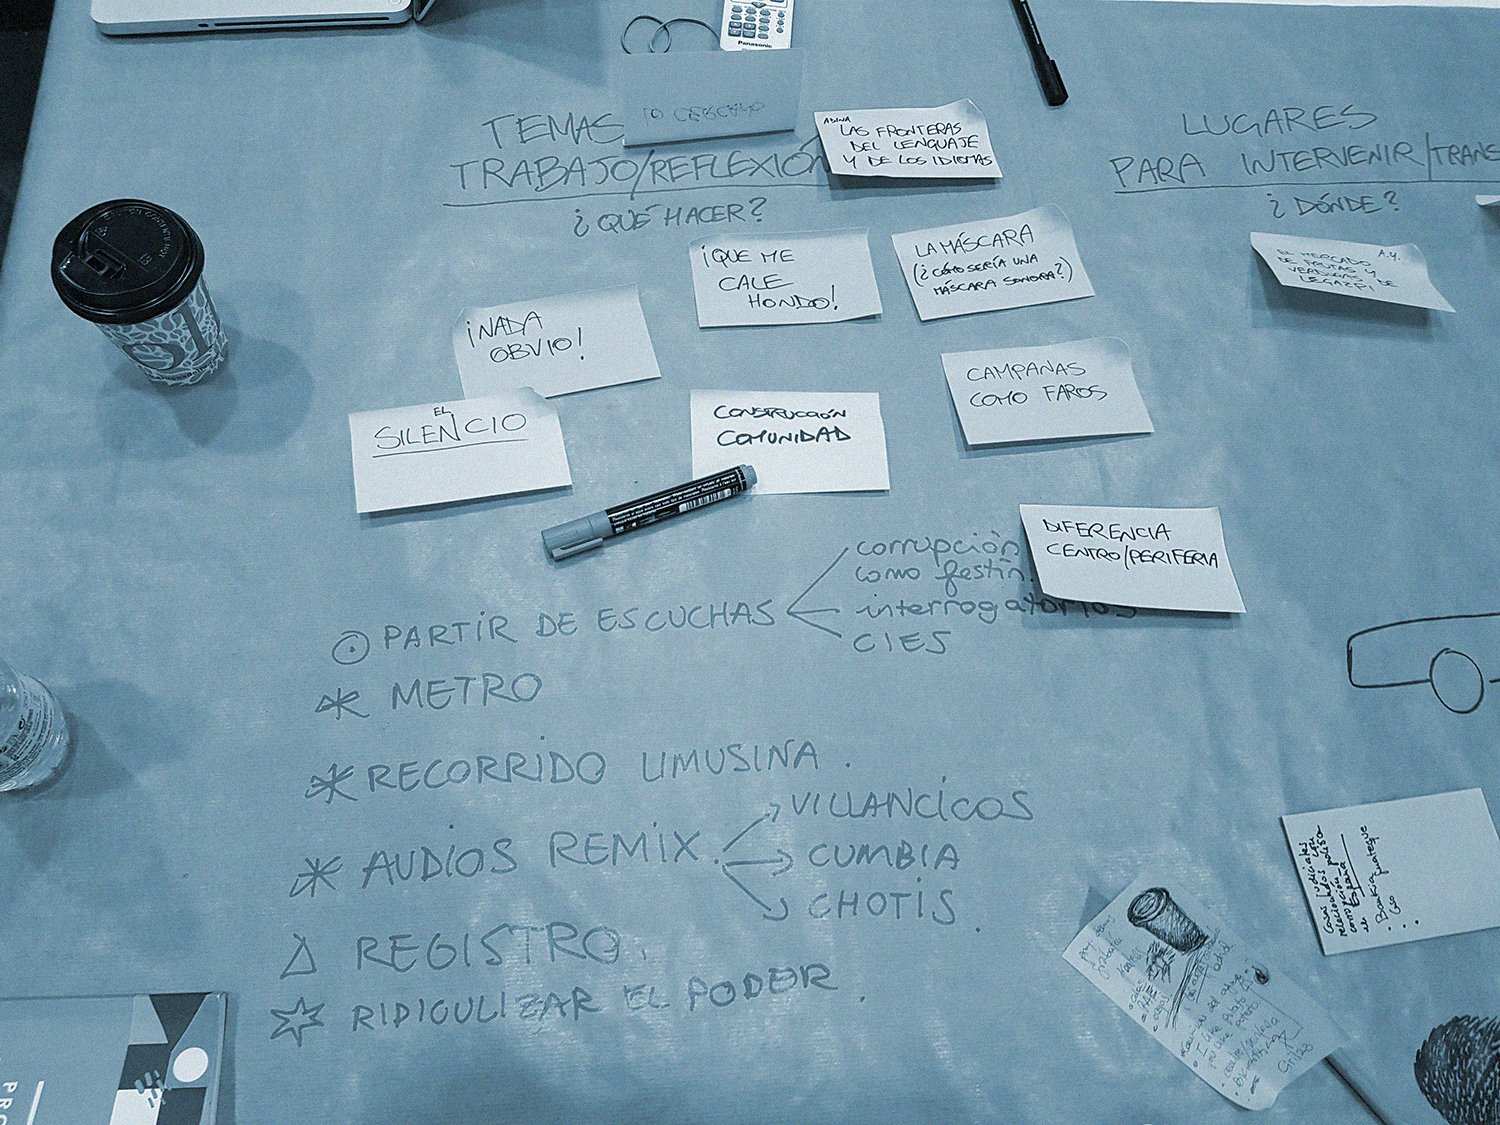 Panasonic
TEMAS
TRABAJO/REFLEXIÓN
¿QUÉ HACER?
ADINA
LAS FRONTERAS
DEL LENGUAJE
Y DE LOS IDIOMAS
LUGARES
PARA INTERVENIR/TRANS
¿DÓNDE?
¡QUE ME
CALE
HONDO!
LA MÁSCARA
(¿CÓMO SERÍA UNA
MÁSCARA SONORA?)
A.Y.
EL MERCADO
DE FRUTAS Y
VERDURAS DE
LEGAZPI
¡NADA
OBVIO!
EL
SILENCIO
CONSTRUCCIÓN
COMUNIDAD
CAMPANAS
COMO FAROS
DIFERENCIA
CENTRO/PERIFERIA
PARTIR DE ESCUCHAS
corrupción
como festín.
interrogatorios
CIES
METRO
RECORRIDO LIMUSINA.
AUDIOS REMIX.
VILLANCICOS
CUMBIA
CHOTIS
REGISTRO.
RIDICULIZAR EL PODER.
Casos judiciales
relacionados con
corrupción
de España
Bankia
PRO